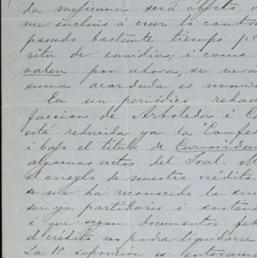 da mejicana será affecto a
me inclino à creer lo contra
pasado bastante tiempo p
situ de envidia; i como
valen por ahora, se vera
suma acordada es
En un periódico redac
faccion de Arboleda i C
está reducida ya la Confed
i bajo el título de
algunos actos del Gral. M
el arreglo de nuestro crédito
se me ha reconocido la su
ser yo partidario i sosten
i que segun documentos feh
el crédito no podia liquidarse
La 1ª suposicion es enteram